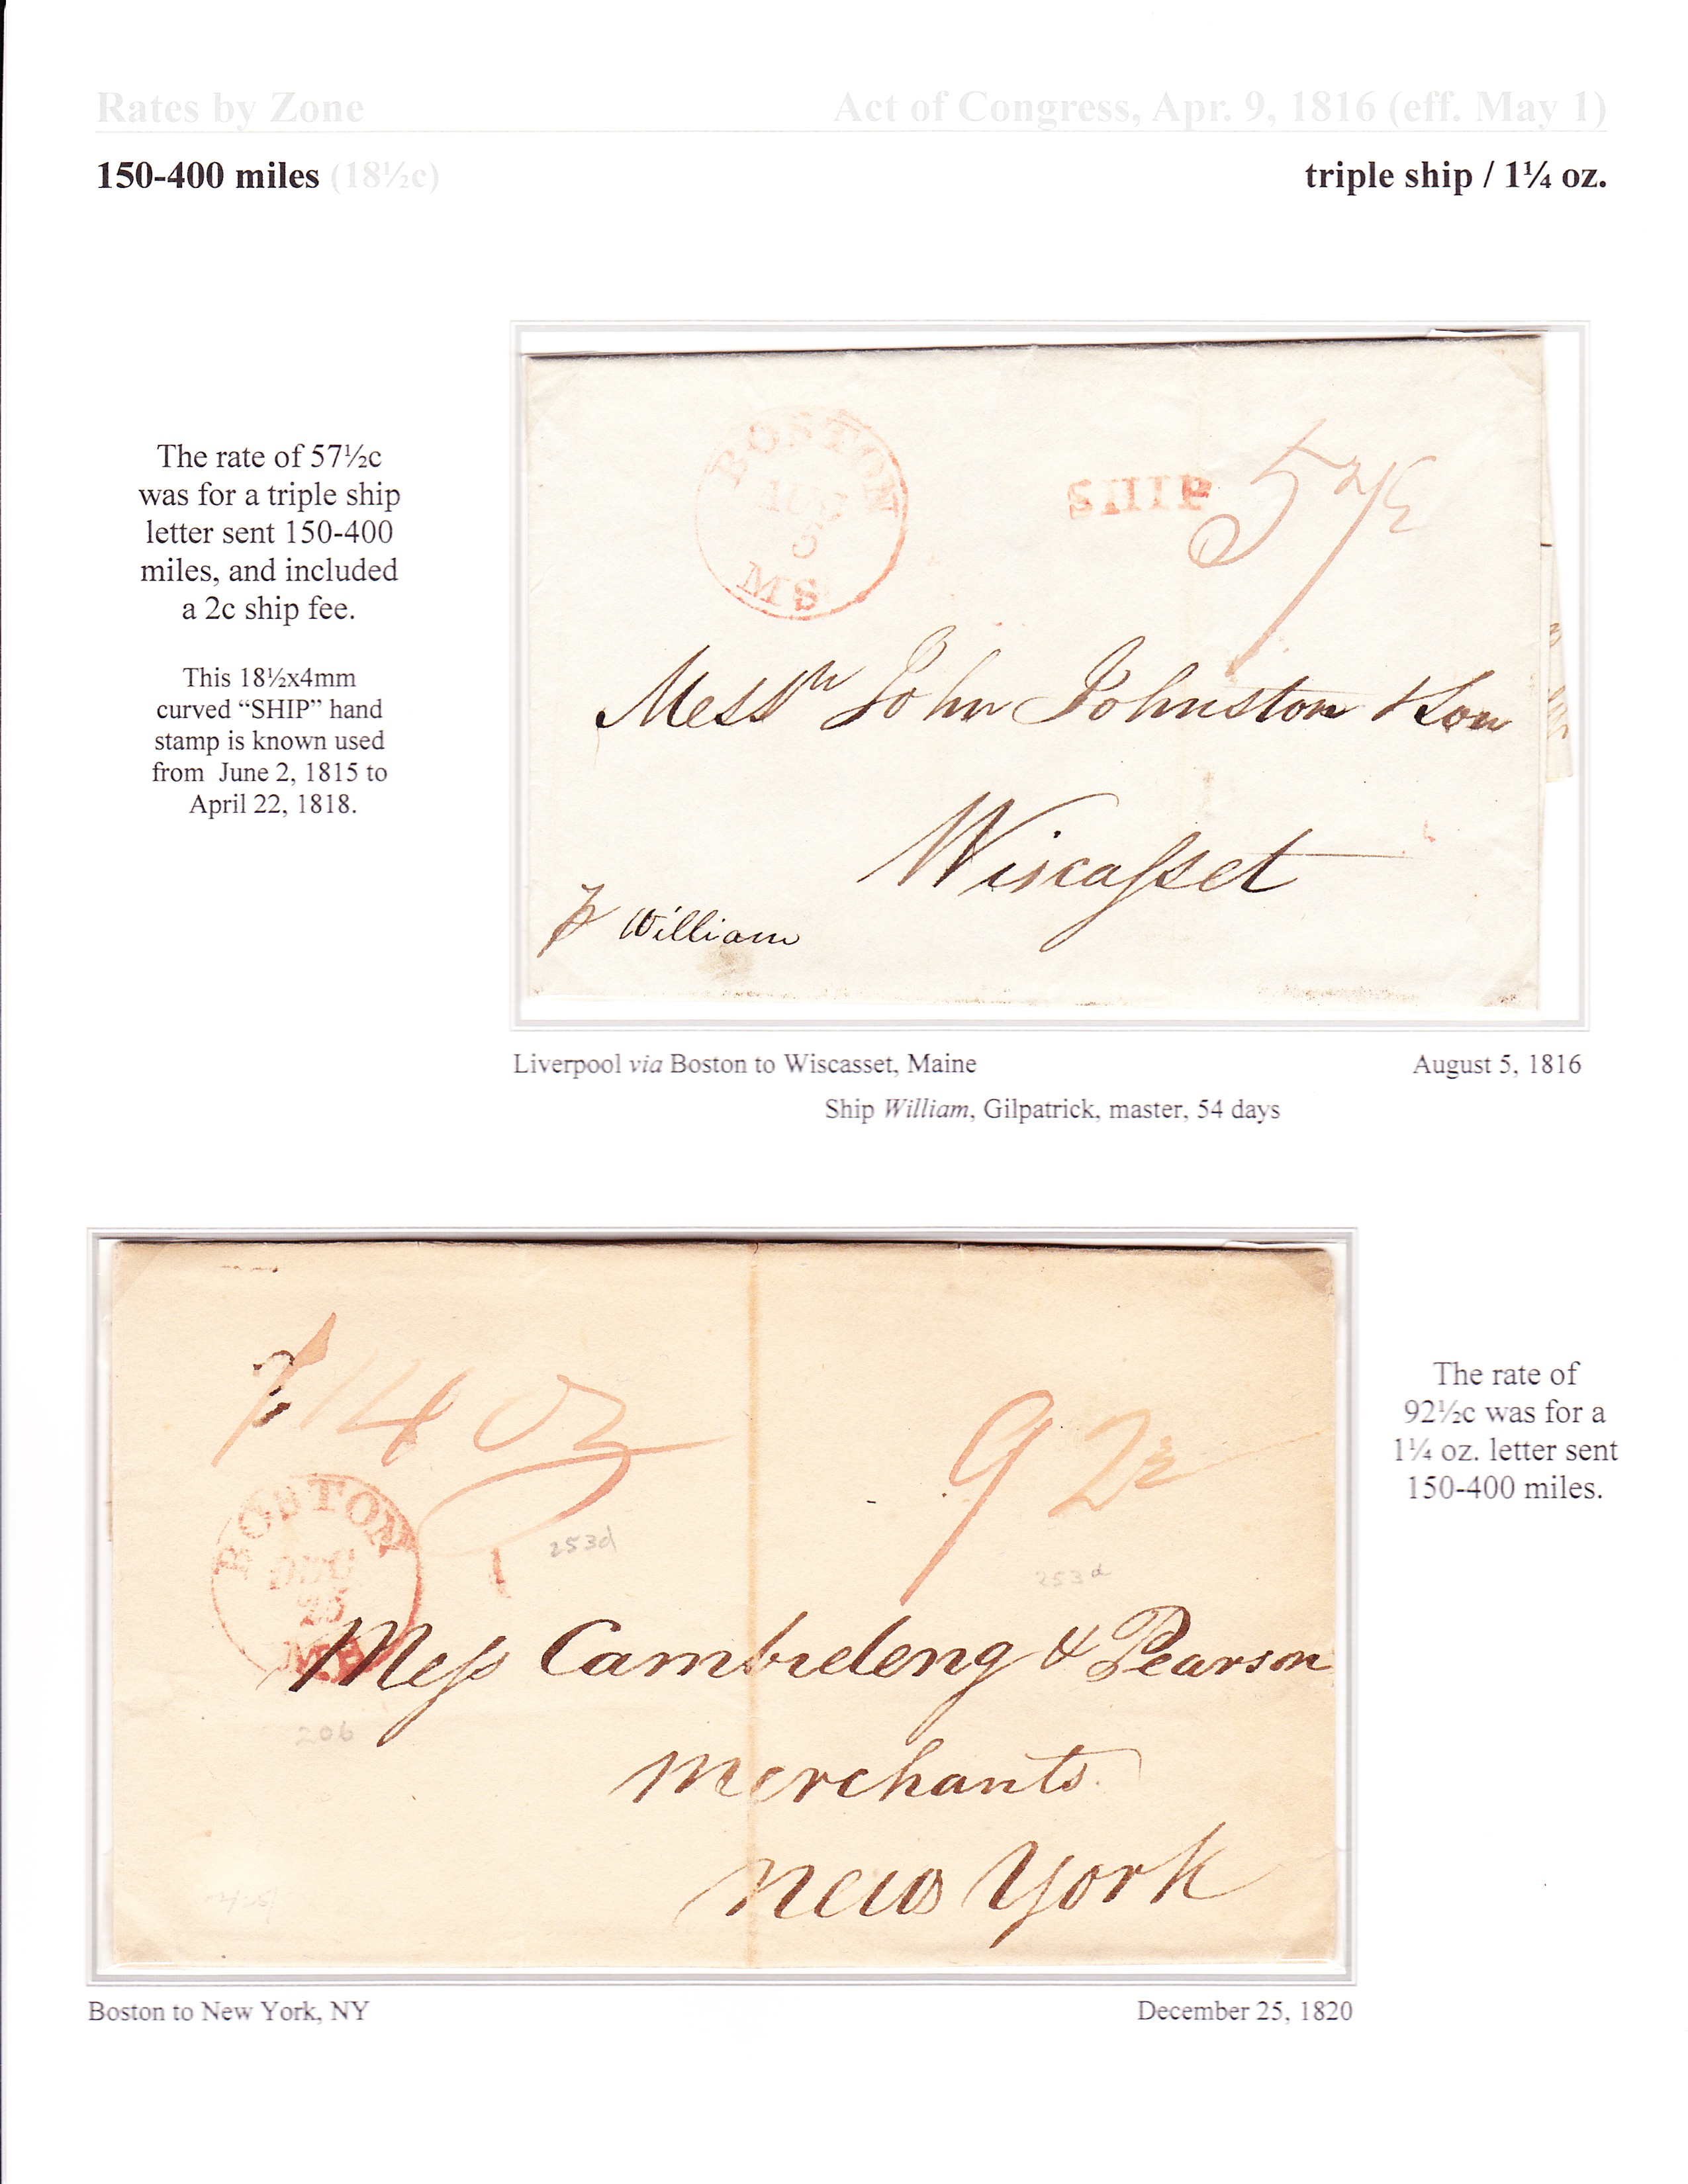 Rates by Zone
Act of Congress, Apr. 9, 1816 (eff. May 1)
150-400 miles (18½c)
triple ship / 1¼ oz.
The rate of 57½c
was for a triple ship
letter sent 150-400
miles, and included
a 2c ship fee.
This 18½x4mm
curved “SHIP” hand
stamp is known used
from June 2, 1815 to
April 22, 1818.
BOSTON
AUG
5
MS
SHIP
57½
Messrs John Johnston & Son
Wiscasset
p William
Liverpool via Boston to Wiscasset, Maine
August 5, 1816
Ship William, Gilpatrick, master, 54 days
1¼ oz
92½
BOSTON
DEC
25
MS
253d
253d
Mess Cambreleng & Pearson
206
merchants
New York
The rate of
92½c was for a
1¼ oz. letter sent
150-400 miles.
Boston to New York, NY
December 25, 1820